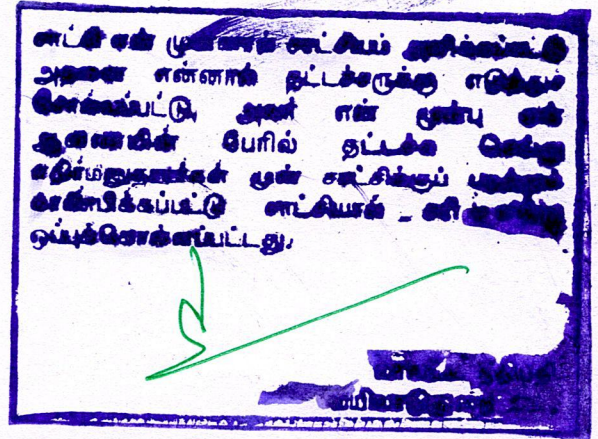 சாட்சி என் முன்னால் சாட்சியம் அளிக்கப்பட்டு
அதனை என்னால் தட்டச்சருக்கு எடுத்துச்
சொல்லப்பட்டு, அவர் என் முன்பு என்
ஆணையின் பேரில் தட்டச்சு செய்து
எதிர்மனுதாரர்கள் முன் சாட்சிக்குப் படித்துக்
காண்பிக்கப்பட்டு சாட்சியால் சரி
ஒப்புக்கொள்ளப்பட்டது.